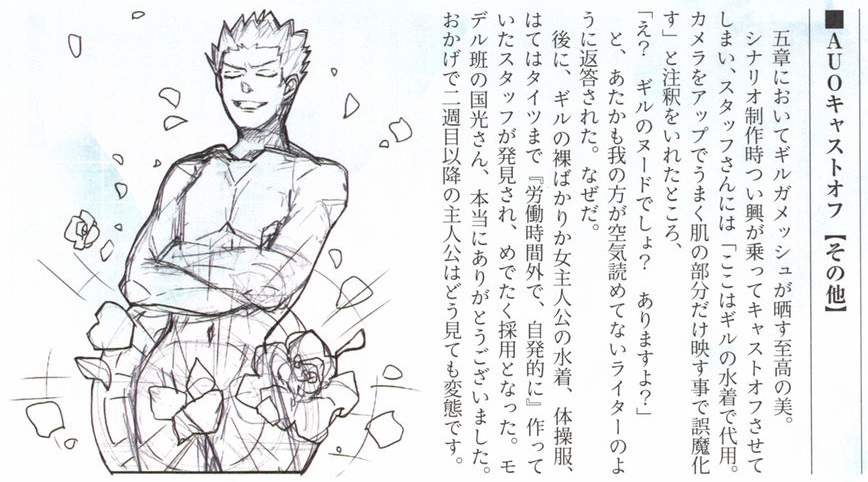 ■AUOキャストオフ【その他】
五章においてギルガメッシュが晒す至高の美。
シナリオ制作時つい興が乗ってキャストオフさせて
しまい、スタッフさんには「ここはギルの水着で代用。
カメラをアップでうまく肌の部分だけ映す事で誤魔化
す」と注釈をいれたところ、
「え？　ギルのヌードでしょ？　ありますよ？」
と、あたかも我の方が空気読めてないライターのよ
うに返答された。なぜだ。
後に、ギルの裸ばかりか女主人公の水着、体操服、
はてはタイツまで『労働時間外で、自発的に』作って
いたスタッフが発見され、めでたく採用となった。モ
デル班の国光さん、本当にありがとうございました。
おかげで二週目以降の主人公はどう見ても変態です。